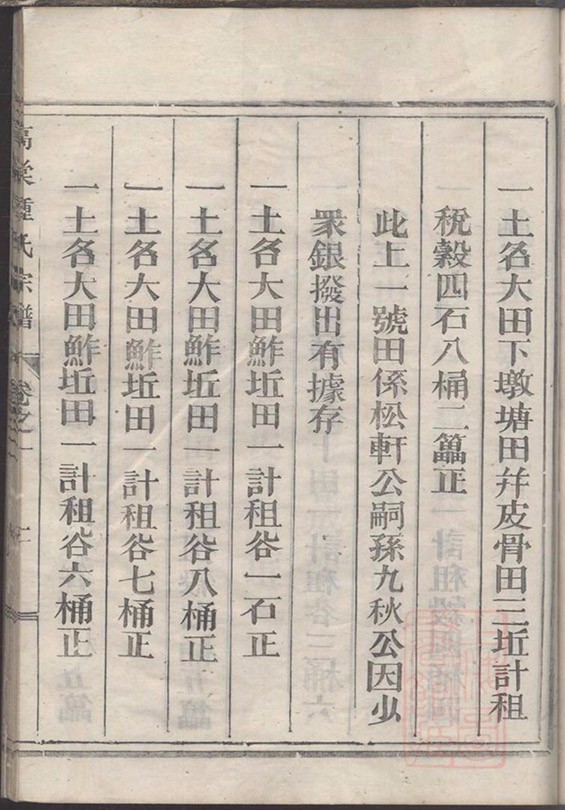 一土名大田下墩塘田并皮骨田三坵計租
稅穀四石八桶二籮正
此上一號田係松軒公嗣孫九秋公因少
眾銀撥出有據存
一土名大田鮓坵田一計租谷一石正
一土名大田鮓坵田一計租谷八桶正
一土名大田鮓坵田一計租谷七桶正
一土名大田鮓坵田一計租谷六桶正
氏宗譜 卷之一